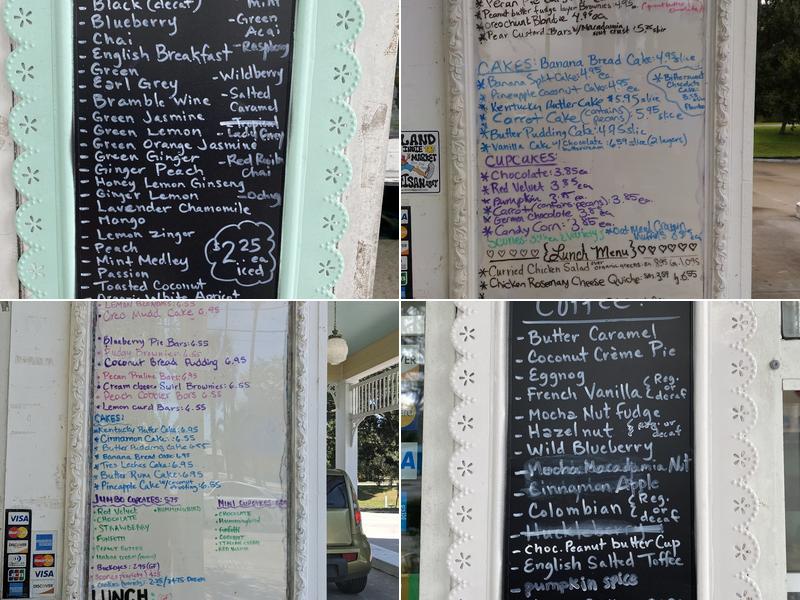 - Black (decaf)
- Blueberry
- Chai
- English Breakfast
- Green
- Earl Grey
- Bramble Wine
- Green Jasmine
- Green Lemon
- Green Orange Jasmine
- Green Ginger
- Ginger Peach
- Honey Lemon Ginseng
- Ginger Lemon
- Lavender Chamomile
- Mango
- Lemon Zinger
- Peach
- Mint Medley
- Passion
- Toasted Coconut
Mint
- Green
Acai
- Wildberry
- Salted
Caramel
- Lady Grey
Chai
$2.25
ea
iced
* Peanut butter fudge layer Brownies
* Oreo chunk Blondie 4.95ea
* Pear Custard Bars w/Macadamia
nut crust
CAKES: Banana Bread Cake: 4.95 slice
* Banana Split Cake: 4.95 ea
* Pineapple Coconut Cake: 4.95 ea
* Kentucky Butter Cake $5.95 slice
* Carrot Cake (contains pecans) 5.95 slice
* Butter Pudding Cake: 4.95 slice
* Vanilla Cake w/Chocolate (2 layers)
* Bittersweet
Chocolate
Cake
CUPCAKES:
* Chocolate: 3.85 ea
* Red Velvet 3.85 ea
* Pumpkin 3.85 ea
* Carrot (contains pecans) 3.85 ea
* German Chocolate 3.85 ea
* Candy Corn: 3.85 ea
♡♡♡♡♡♡ {Lunch Menu} ♡♡♡♡♡♡
* Curried Chicken Salad
* Chicken Rosemary Cheese Quiche
LAND
MARKET
Oreo Mudd Cake 6.95
* Blueberry Pie Bars: 6.55
* Coconut Bread Pudding 6.95
* Pecan Praline Bars: 6.95
* Cream cheese Swirl Brownies: 6.55
* Peach Cobbler Bars 6.55
* Lemon curd Bars: 6.55
CAKES:
* Kentucky Butter Cake: 6.95
* Cinnamon Cake: 6.55
* Butter Pudding Cake 6.55
* Banana Bread Cake: 6.95
* Tres Leches Cake: 6.95
* Butter Rum Cake: 6.95
* Pineapple Cake w/coconut frosting: 6.55
JUMBO CUPCAKES: 5.75
* Red Velvet
* HUMMINGBIRD
* CHOCOLATE
* STRAWBERRY
* FUNFETTI
* PEANUT BUTTER
* Buckeyes: 2.95 (GF)
LUNCH
MINI CUPCAKES
- CHOCOLATE
- Hummingbird
- Funfetti
- COCONUT
- ITALIAN CREAM
- RED VELVET
VISA
DISCOVER
VISA
DISCOVER
COFFEE:
- Butter Caramel
- Coconut Crème Pie
- Eggnog
- French Vanilla {Reg.
decaf
- Mocha Nut Fudge
- Hazelnut {Reg. or
decaf
- Wild Blueberry
- Mocha Macadamia Nut
- Cinnamon Apple
- Colombian {Reg.
or
decaf
- Choc. Peanut butter Cup
- English Salted Toffee
- pumpkin spice